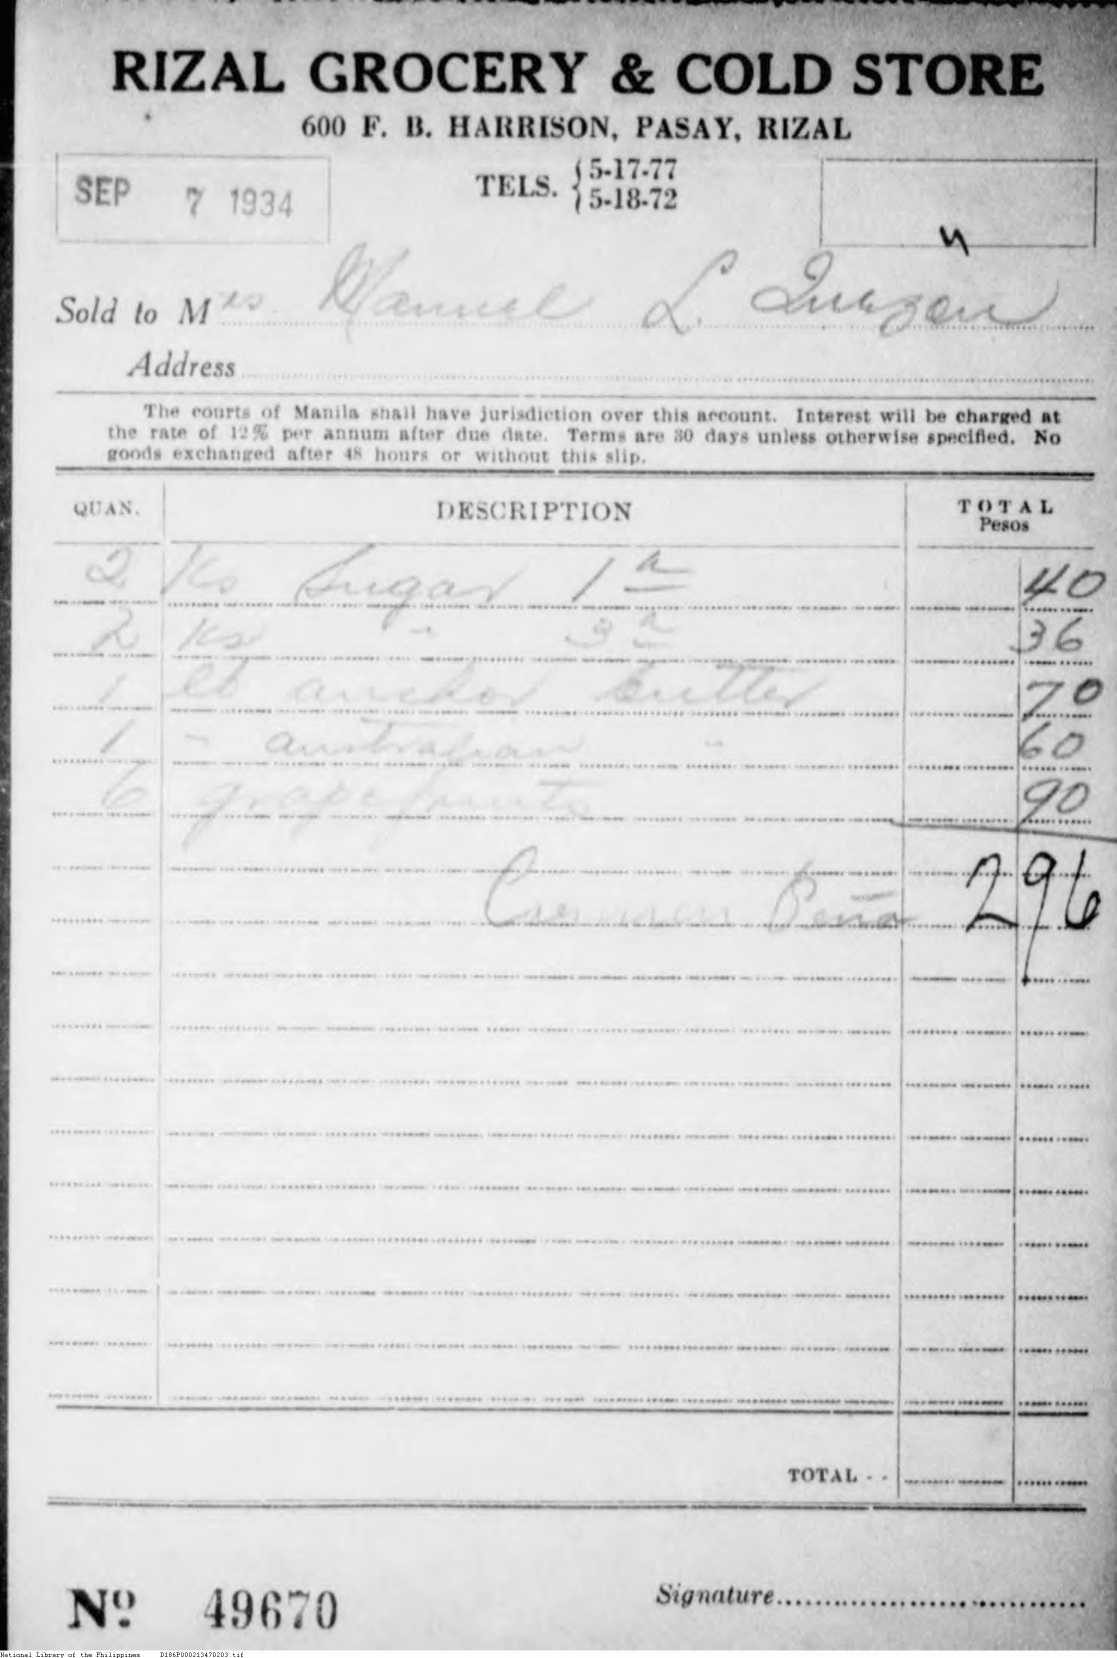 RIZAL GROCERY & COLD STORE
600 F. B. HARRISON, PASAY, RIZAL
SEP 7 1934
TELS. { 5-17-77
5-18-72
Sold to Mrs Manuel L. Quezon
Address
The courts of Manila shall have jurisdiction over this account. Interest will be charged at
the rate of 12% per annum after due date. Terms are 30 days unless otherwise specified. No
goods exchanged after 48 hours or without this slip.
QUAN. DESCRIPTION TOTAL
Pesos
2 Ks Sugar 1a 40
2 Ks " 3a 36
1 lb anchor butter 70
1 " australian " 60
6 grapefruits 90
296
Carmen Peña
TOTAL - -
No. 49670
Signature
National Library of the Philippines D186P000213470203.tif